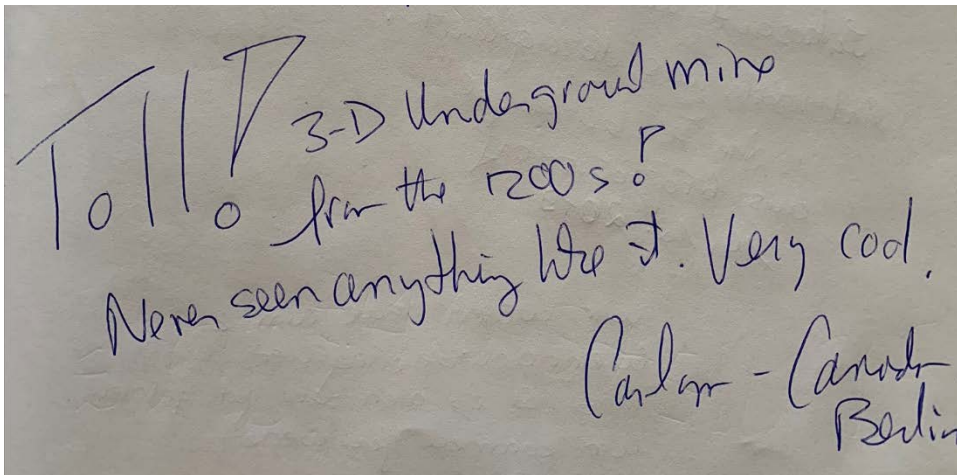 Toll! 3-D Underground mine
from the 1200s!
Never seen anything like it. Very cool.
Carlyn - Canada
Berlin